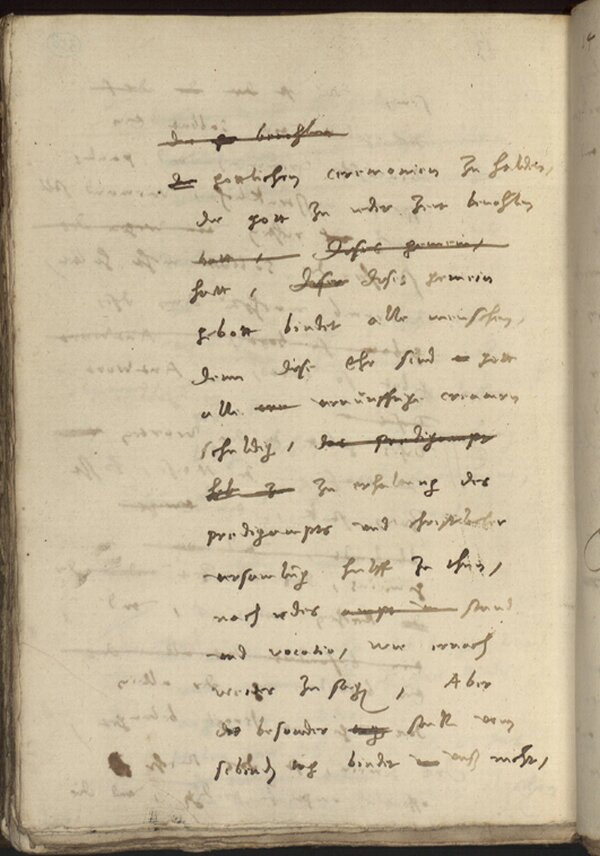 die gottlichen ceremonien zu halden,
die gott zu ieder zeit bevohlen
hatt, dieses gemein
hatt, dises gemein
gebott bindet alle menschen,
denn dise Ehr sind gott
alle vernunfftige creaturn
schuldig, das predigampt
zu erhaltung des
predigampts und christlicher
versamlung hulff zu thun,
nach iedes ampt stand
und vocatio, wie ernach
weiter zu sagen, Aber
das besonder stuk vom
sibend tag bindet uns nicht,